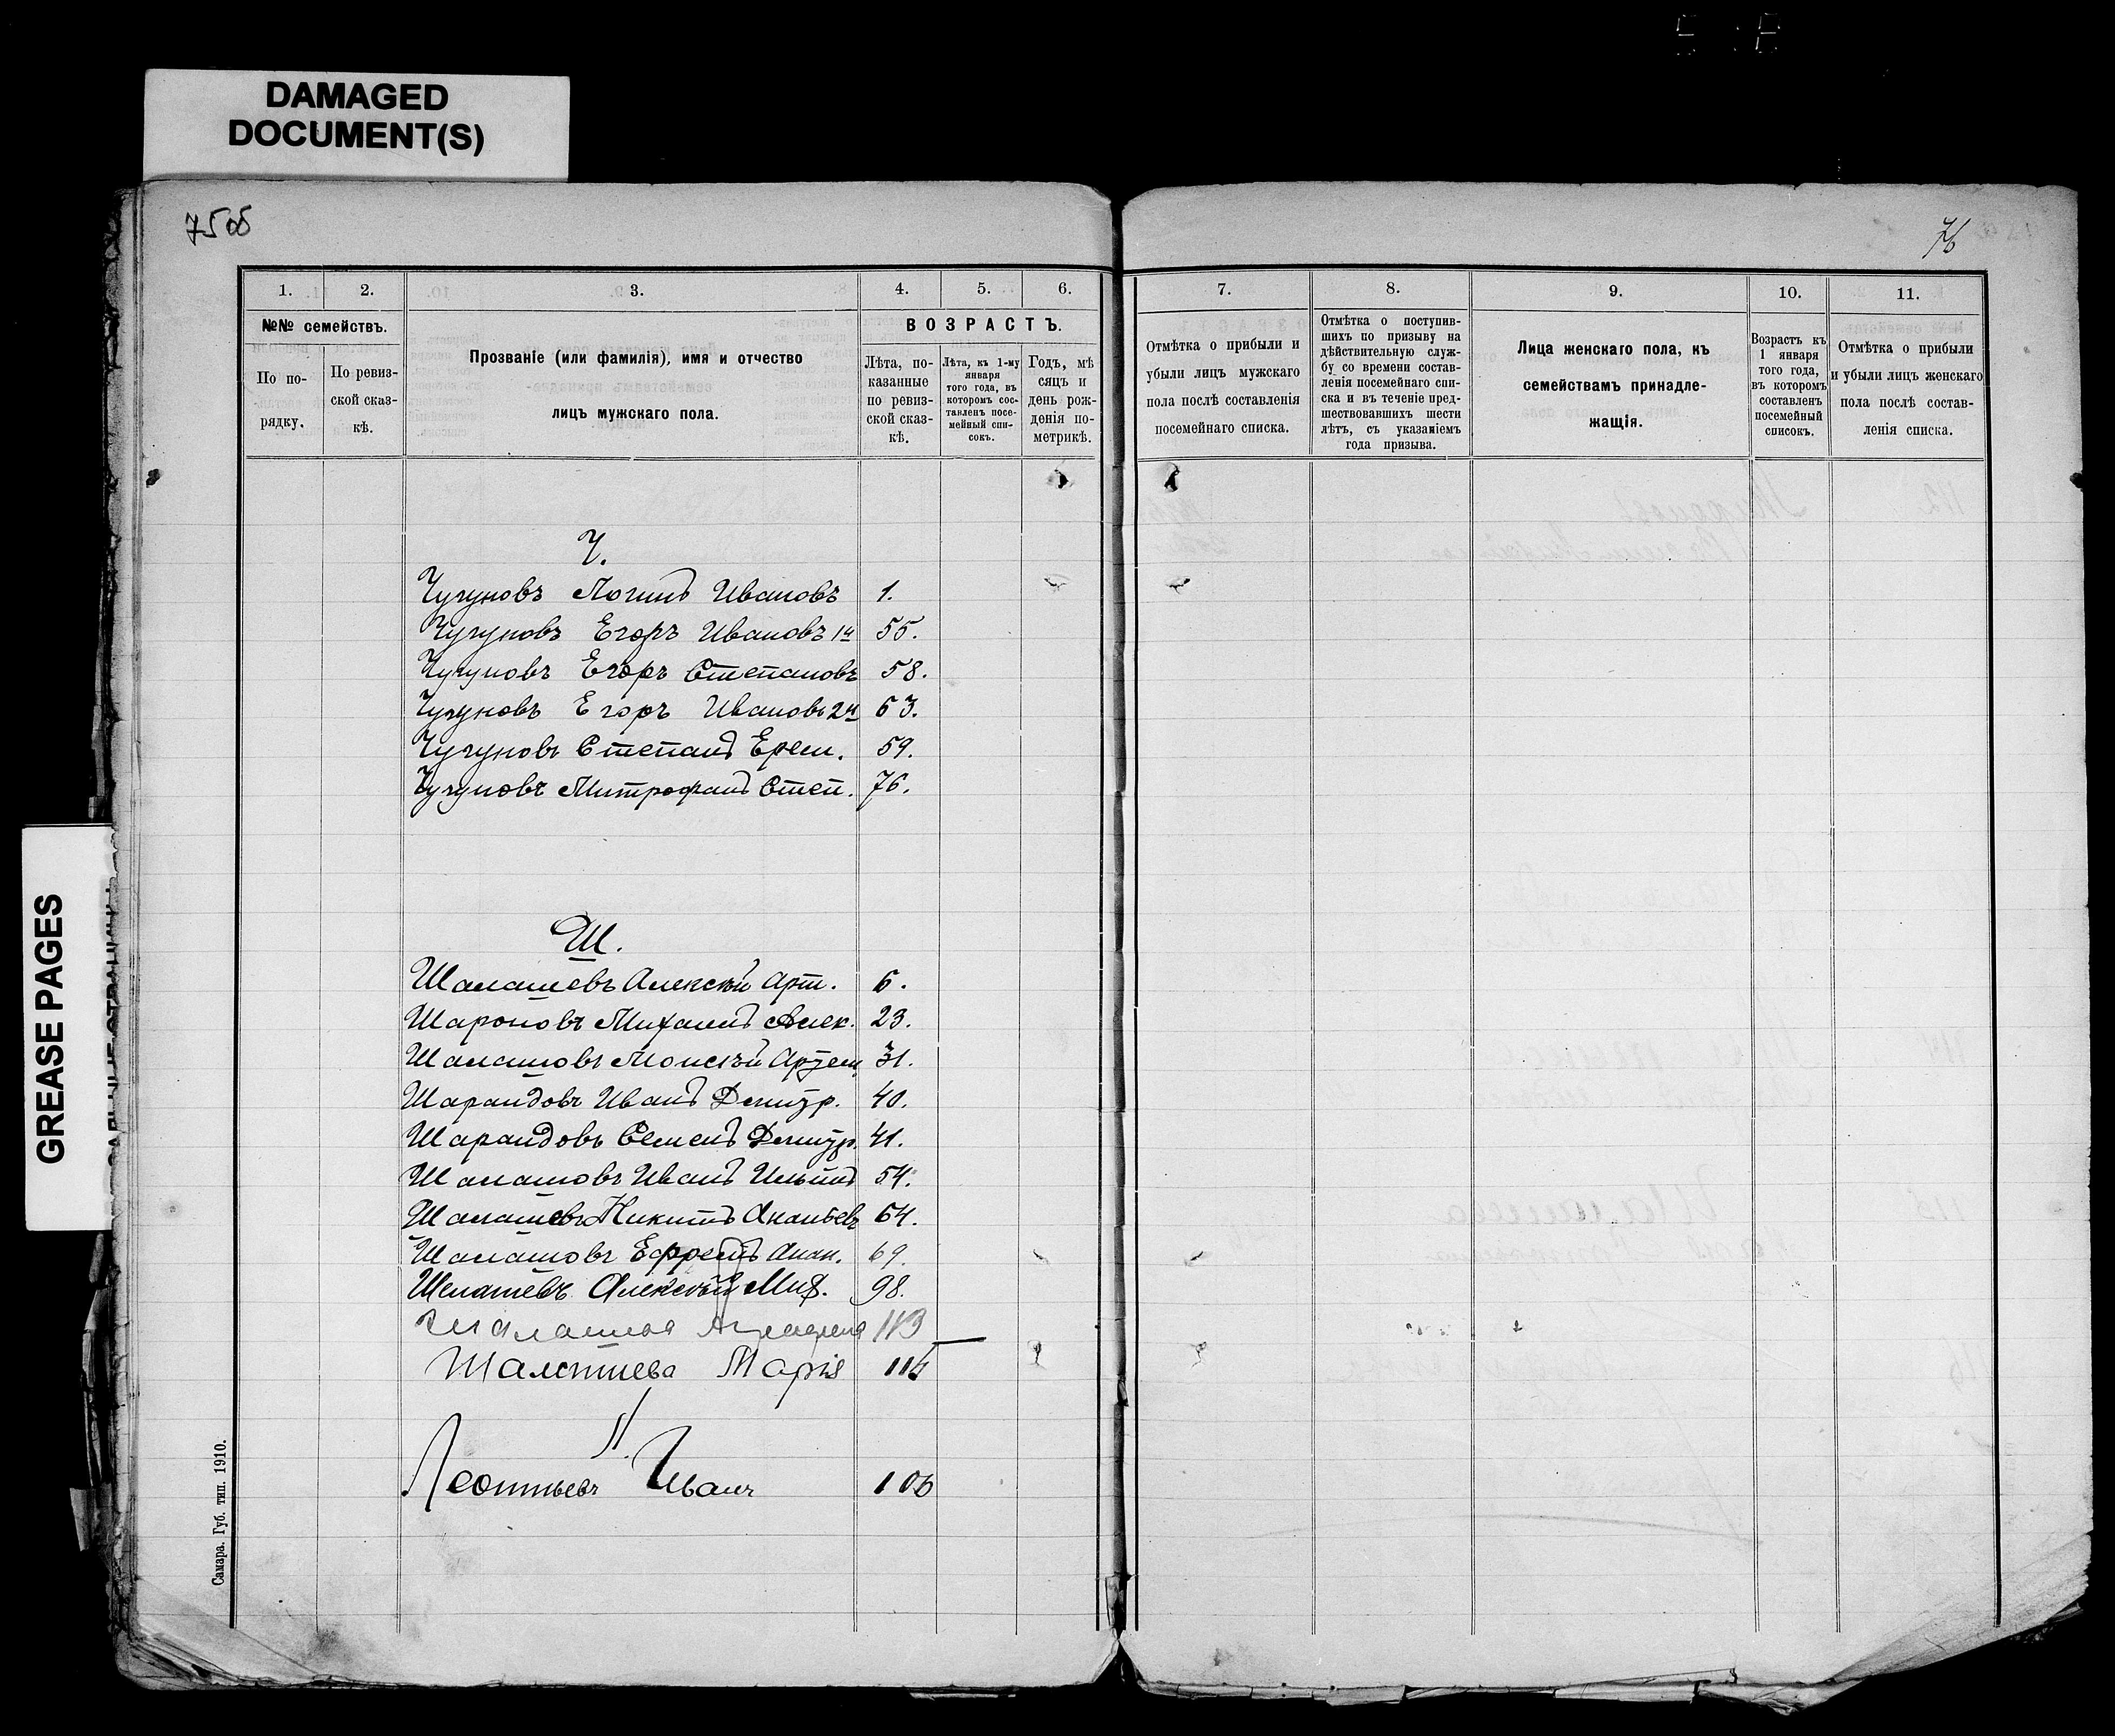 DAMAGED
DOCUMENT(S)
GREASE PAGES
75 об
1.
2.
3.
4.
5.
6.
№№ семействъ.
По по-
рядку.
По ревиз-
ской сказ-
кѣ.
Прозваніе (или фамилія), имя и отчество
лицъ мужскаго пола.
ВОЗРАСТЪ.
Лѣта, по-
казанные
по ревиз-
ской сказ-
кѣ.
Лѣта, къ 1-му
января
того года, въ
которомъ сос-
тавленъ посе-
мейный спи-
сокъ.
Годъ, мѣ
сяцъ и
день рож-
денія по-
метрикѣ.
Ч.
Чугуновъ Логинъ Ивановъ 1.
Чугуновъ Егоръ Ивановъ 1й 55.
Чугуновъ Егоръ Степановъ 58.
Чугуновъ Егоръ Ивановъ 2й 63.
Чугуновъ Степанъ Ерем. 59.
Чугуновъ Митрофанъ Степ. 76.
Ш.
Шалашевъ Алексѣй Арт. 6.
Шароновъ Михаилъ Алек. 23.
Шалашовъ Моисѣй Артем. 31.
Шарандовъ Иванъ Дмитр. 40.
Шарандовъ Семенъ Дмитр. 41.
Шалашовъ Иванъ Ильинъ 54.
Шалашевъ Никита Ананьевъ 64.
Шалашовъ Ефремъ Анан. 69.
Шелашевъ Алексѣй Миф. 98.
113
Шалашева Марія
Л.
Леонтьевъ Иванъ 106
Самара. Губ. тип. 1910.
76
7.
8.
9.
10.
11.
Отмѣтка о прибыли и
убыли лицъ мужскаго
пола послѣ составленія
посемейнаго списка.
Отмѣтка о поступив-
шихъ по призыву на
дѣйствительную служ-
бу со времени состав-
ленія посемейнаго спи-
ска и въ теченіе пред-
шествовавшихъ шести
лѣтъ, съ указаніемъ
года призыва.
Лица женскаго пола, къ
семействамъ принадле-
жащія.
Возрастъ къ
1 января
того года,
въ которомъ
составленъ
посемейный
списокъ.
Отмѣтка о прибыли
и убыли лицъ женскаго
пола послѣ состав-
ленія списка.